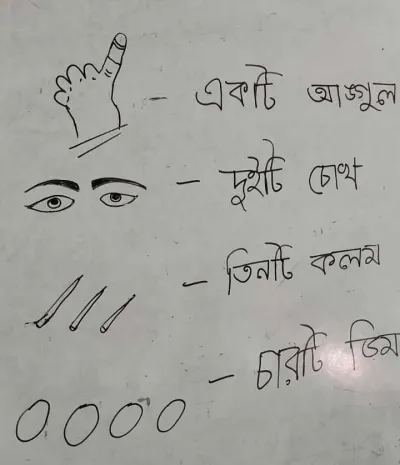 - একটি আঙ্গুল
- দুইটি চোখ
- তিনটি কলম
- চারটি ডিম